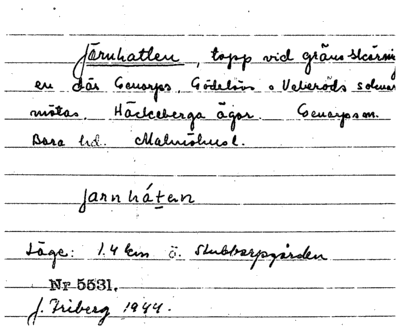 Järnhatten, topp vid gräns-skärning
en där Genarps, Gödelövs o Veberöds socknar
mötas. Häckeberga ägor. Genarps sn.
Bara hd. Malmöhus l.
jarnhátan
Läge: 1.4 km ö. Stubbarpgården
Nr 5531.
J. Friberg 1944.